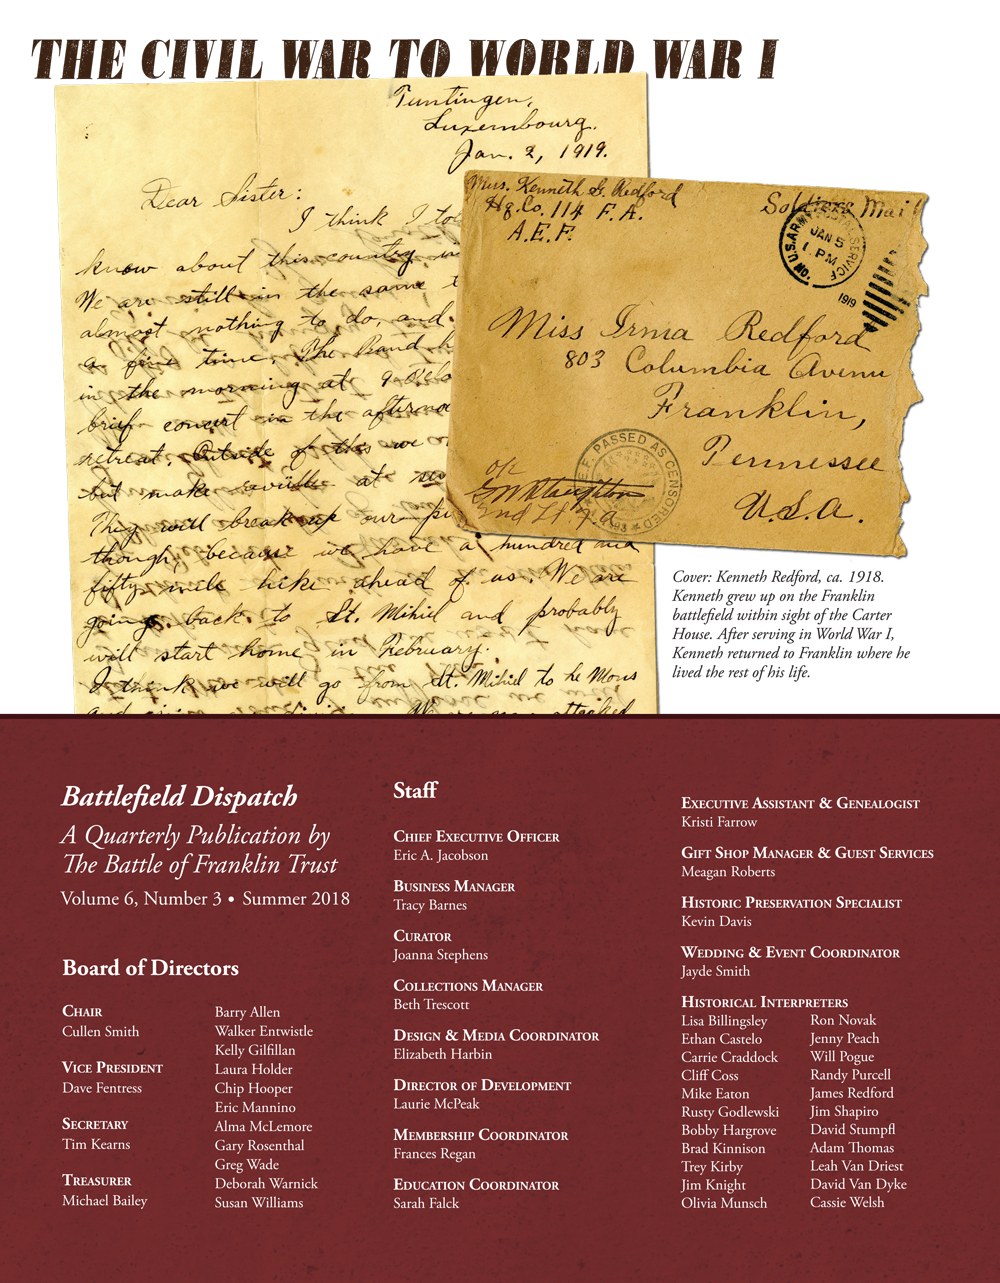 THE CIVIL WAR TO WORLD WAR I
Tuntingen,
Luxembourg.
Jan. 2, 1919.
Dear Sister:
I think I to
know about this country
We are still in the same
almost nothing to do, and
a fine time. The Band h
in the morning at 9 o'clo
brief concert in the afternoo
retreat. Outside of this we
but make reveille at
They will break up our
though, because we have a hundred and
fifty mile hike ahead of us. We are
going back to St. Mihiel and probably
will start home in February.
I think we will go from St. Mihiel to Le Mans
Mus. Kenneth G. Redford
Hq. Co. 114 F. A.
A.E.F.
Soldiers Mail
U.S. ARMY POSTAL SERVICE
JAN 5
1 PM
1919
Miss Irma Redford
803 Columbia Avenu
Franklin,
Tennessee
U.S.A.
A.E.F. PASSED AS CENSORED
2nd Lt. F.A.
Cover: Kenneth Redford, ca. 1918.
Kenneth grew up on the Franklin
battlefield within sight of the Carter
House. After serving in World War I,
Kenneth returned to Franklin where he
lived the rest of his life.
Battlefield Dispatch
A Quarterly Publication by
The Battle of Franklin Trust
Volume 6, Number 3 • Summer 2018
Board of Directors
Chair
Cullen Smith
Vice President
Dave Fentress
Secretary
Tim Kearns
Treasurer
Michael Bailey
Barry Allen
Walker Entwistle
Kelly Gilfillan
Laura Holder
Chip Hooper
Eric Mannino
Alma McLemore
Gary Rosenthal
Greg Wade
Deborah Warnick
Susan Williams
Staff
Chief Executive Officer
Eric A. Jacobson
Business Manager
Tracy Barnes
Curator
Joanna Stephens
Collections Manager
Beth Trescott
Design & Media Coordinator
Elizabeth Harbin
Director of Development
Laurie McPeak
Membership Coordinator
Frances Regan
Education Coordinator
Sarah Falck
Executive Assistant & Genealogist
Kristi Farrow
Gift Shop Manager & Guest Services
Meagan Roberts
Historic Preservation Specialist
Kevin Davis
Wedding & Event Coordinator
Jayde Smith
Historical Interpreters
Lisa Billingsley
Ethan Castelo
Carrie Craddock
Cliff Coss
Mike Eaton
Rusty Godlewski
Bobby Hargrove
Brad Kinnison
Trey Kirby
Jim Knight
Olivia Munsch
Ron Novak
Jenny Peach
Will Pogue
Randy Purcell
James Redford
Jim Shapiro
David Stumpfl
Adam Thomas
Leah Van Driest
David Van Dyke
Cassie Welsh